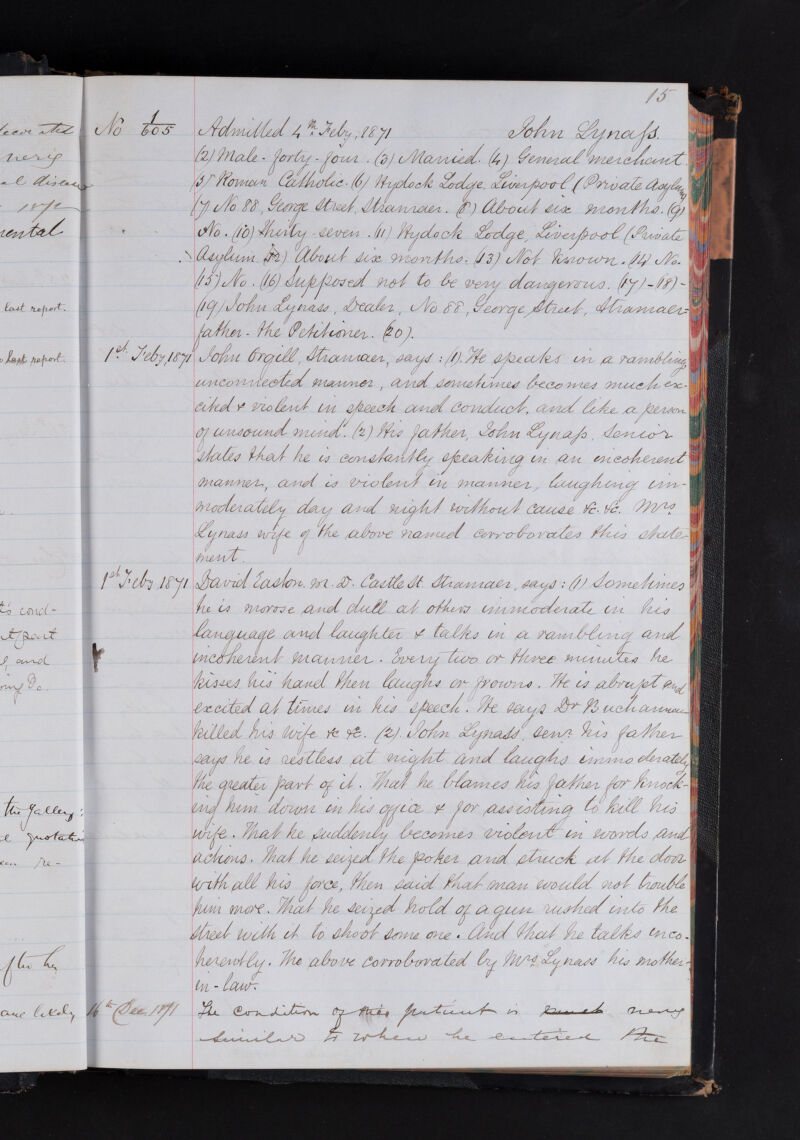 15
No 1/605 Admitted 4th Feby, 1871 John Lynass
(2) Male - forty-four. (3) Married. (4) General merchant.
(5) Roman Catholic. (6) Hydock Lodge, Liverpool (Private Asylum)
(7) No 88, George Street, Stranraer. (8) About six months. (9)
No. (10) Thirty-seven. (11) Hydock Lodge, Liverpool (Private
Asylum. (12) About six months. (13) Not known. (14) No.
(15) No. (16) Supposed not to be very dangerous. (17) - (18) -
(19) John Lynass, Dealer, No 88, George Street, Stranraer=
father - the Petitioner. (20).
1st Feby, 1871 John Orgill, Stranraer, says: (1) He speaks in a rambling,
unconnected manner, and sometimes becomes much ex-
cited & violent in speech and conduct, and like a person
of unsound mind. (2) His father, John Lynass, Senior
states that he is constantly speaking in an incoherent
manner, and is violent in manner, laughing im-
moderately day and night without cause &c. &c. Mrs
Lynass wife of the above named corroborates this state-
ment.
1st Feby 1871 David Easton. M.D. Castle St Stranraer, says: (1) Sometimes
he is morose and dull at others immoderate in his
language and laughter & talks in a rambling and
incoherent manner. Every two or three minutes he
kisses his hand then laughs or frowns. He is abrupt and
excited at times in his speech. He says Dr Buchannan
killed his wife &c &c. (2) John Lynass, senr his father
says he is restless at night and laughs immoderately
the greater part of it. That he blames his father for knock-
ing him down in his office & for assisting to kill his
wife. That he suddenly becomes violent in words and
actions. That he seized the poker and struck at the door
with all his force, then said that man would not trouble
him more. That he seized hold of a gun rushed into the
street with it to shoot some one. And that he talks inco-
herently. The above corroborated by Mrs Lynass his mother-
in-law.
16th Dec. 1871 The condition of this patient is much very
similar to when he entered the
mental
last report.
last report.
cond-
and
the Gallery:
quotation
re-
after her
likely